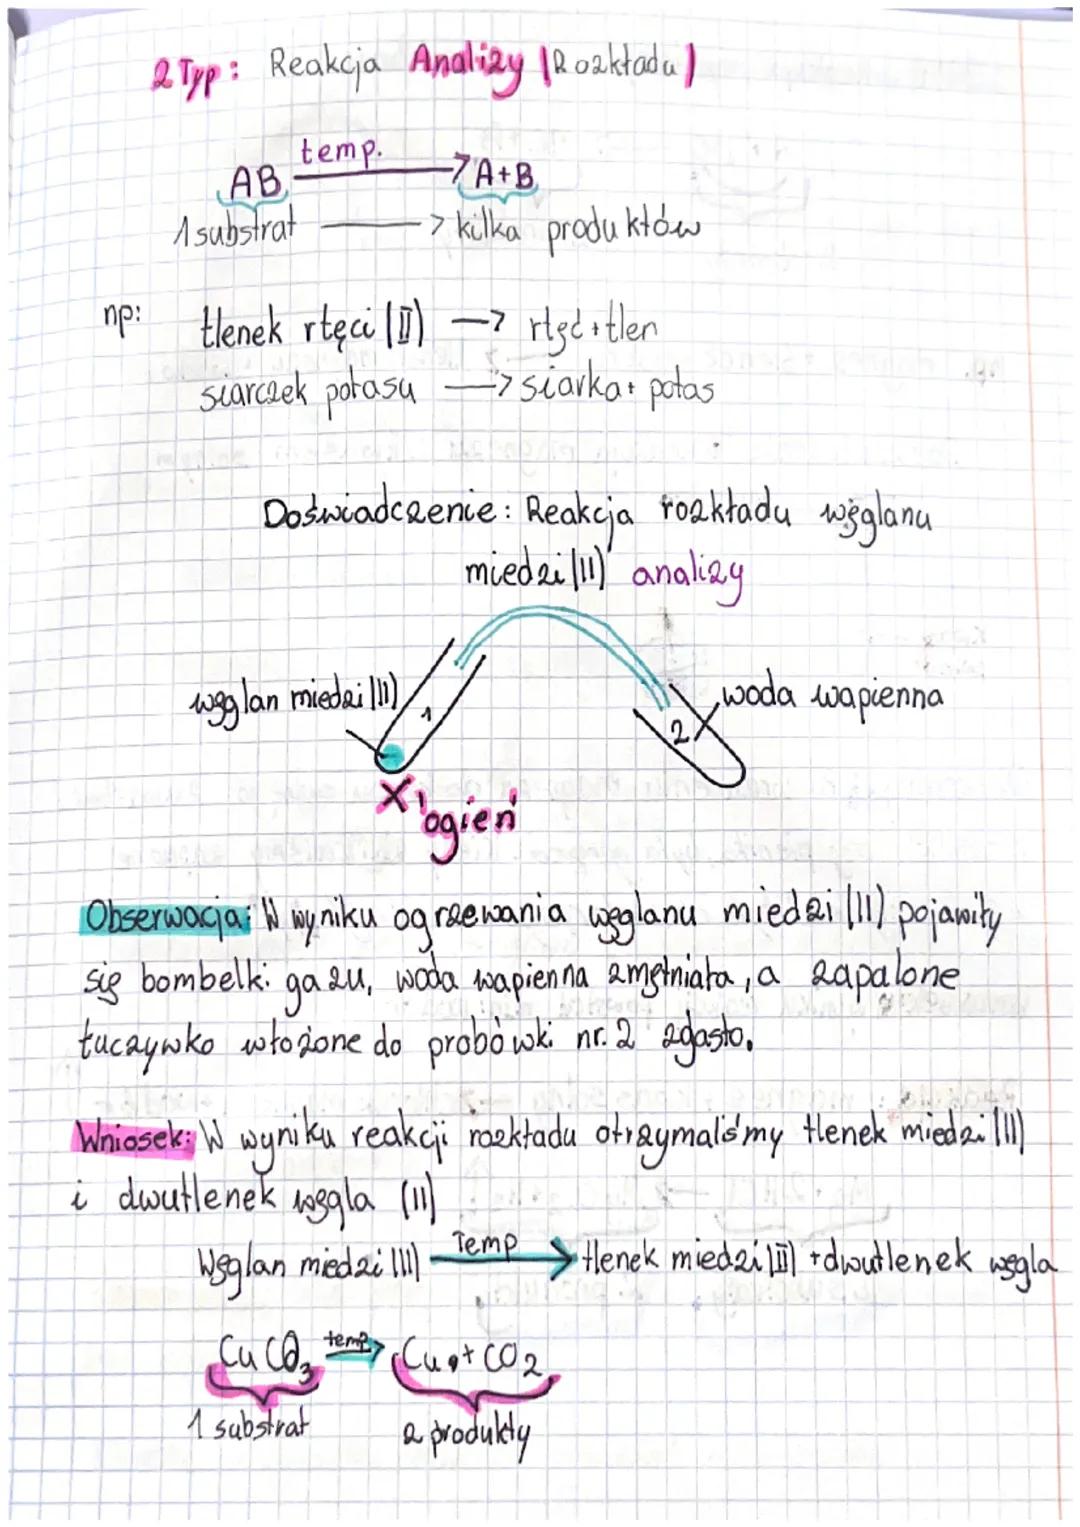 2 Typ: Reakcja Analizy (Rozkładu)
AB temp. → A+B
1 substrat → kilka produktów
np: tlenek rtęci (II) → rtęć + tlen
siarczek potasu → siarka + potas
Doświadczenie: Reakcja rozkładu węglanu
miedzi (II) analizy
węglan miedzi (II)
1
2
woda wapienna
ogień
Obserwacja: W wyniku ogrzewania węglanu miedzi (II) pojawiły
się bombelki gazu, woda wapienna zmętniała, a zapalone
łuczywko włożone do probówki nr. 2 zgasło.
Wniosek: W wyniku reakcji rozkładu otrzymaliśmy tlenek miedzi (II)
i dwutlenek węgla (II)
Węglan miedzi (II) Temp → tlenek miedzi (II) + dwutlenek węgla
CuCO₃ temp → Cuo + CO₂
1 substrat 2 produkty